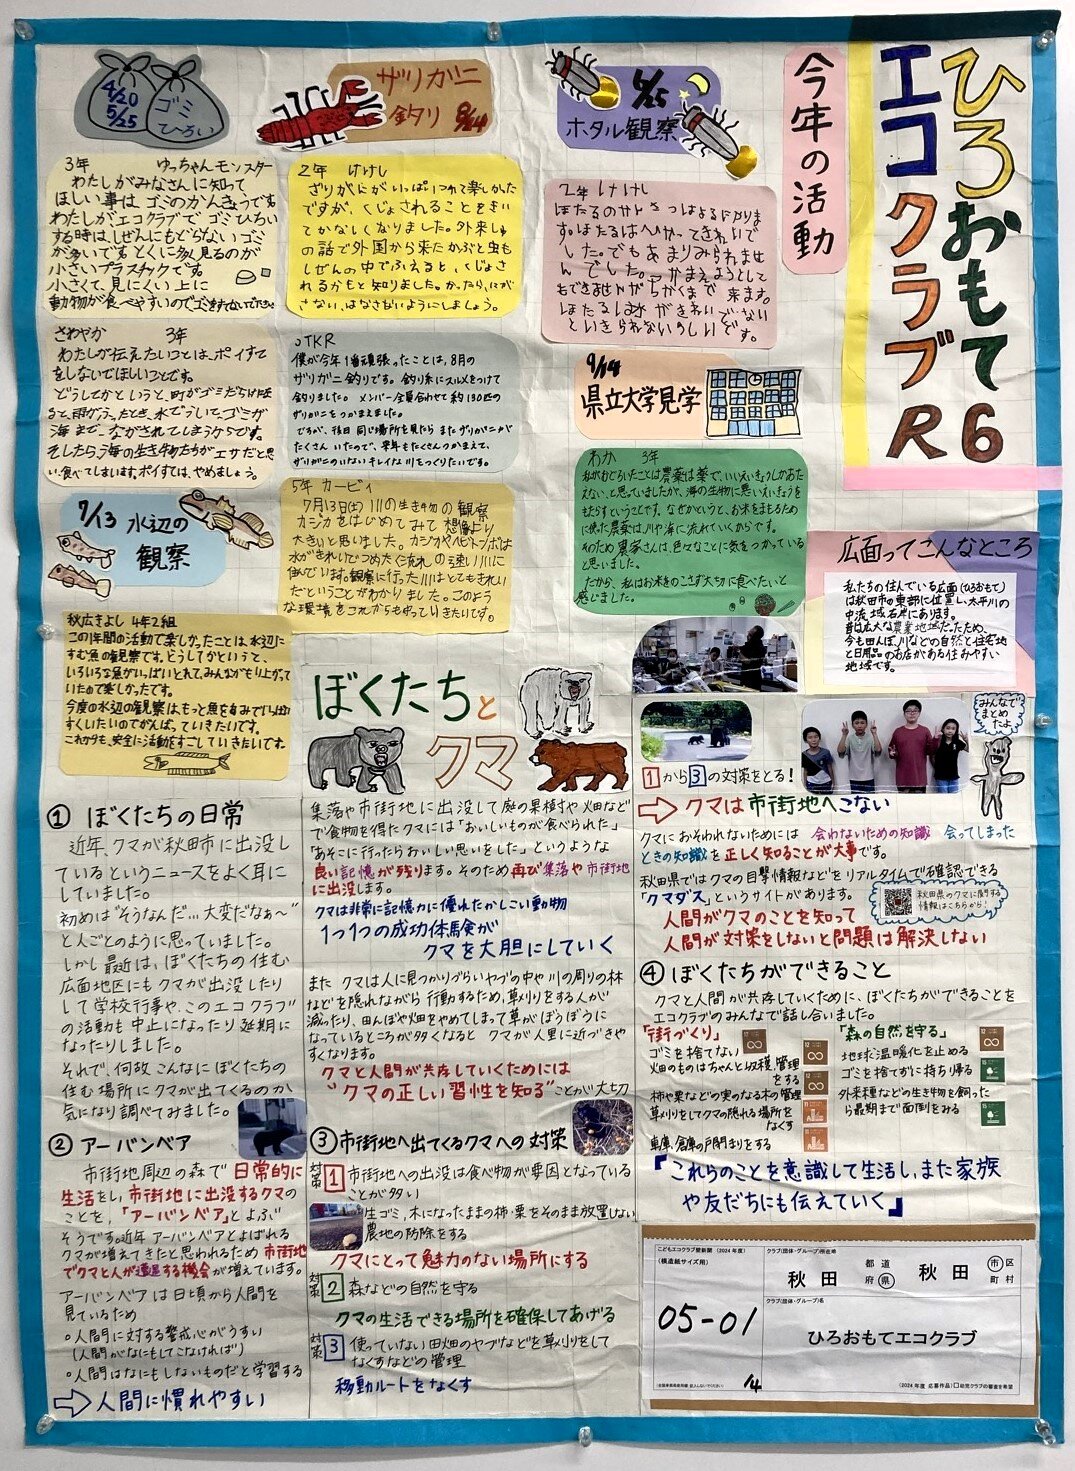 ひろおもて
エコクラブR6
今年の活動
4/20
5/25
ゴミ
ひろい
3年 ゆっちゃんモンスター
わたしがみなさんに知って
ほしい事は、ゴミのかんきょうです
わたしがエコクラブで ゴミひろい
する時は、しぜんにもどらないゴミ
が多いです。とくに多く見るのが
小さいプラスチックです。
小さくて、見にくい上に
動物が食べやすいので
さわやか 3年
わたしが伝えたいことは、ポイすて
をしないでほしいことです。
どうしてかというと、町がゴミだらけ
海まで、ながされてしまうからです。
そしたら、海の生き物たちがエサだと思
い、食べてしまいます。ポイすては、やめましょう。
ザリガニ
釣り 8/24
2年 けけし
ざりがにがいっぱいつれて楽しかた
ですが、くじょされることをきい
てかなしくなりました。外来しゅ
の話で外国から来たかぶと虫も
しぜんの中でふえると、くじょさ
れるかもと知りました。かったり、にが
さない、はなさないようにしましょう。
TKR
僕が今年1番頑張ったことは、8月の
ザリガニ釣りです。釣り糸にスルメをつけて
釣りました。メンバー全員合わせて約130匹の
ザリガニをつかまえました。
ですが、後日同じ場所を見たらまたザリガニが
たくさんいたので、来年もたくさんつかまえて、
ザリガニのいないキレイな川をつくりたいです。
6/25
ホタル観察
2年 けけし
した。でもあまりみられませ
んでした。つかまえようとして
7/13 水辺の
観察
5年 カービィ
7月13日(土)川の生き物の観察
カジカをはじめてみて想像より
大きいと思いました。カジカやヘビトンボは
水がきれいでつめたく流れの速い川に
住んでいます。観察に行った川はとてもきれい
だということがわかりました。このよう
な環境をこれからも守っていきたいです。
秋広きよし 4年2組
この1年間の活動で楽しかったことは、水辺に
すむ魚の観察です。どうしてかというと、
いろいろな魚がいっぱいとれて、みんながもり上がって
いたので楽しかったです。
今度の水辺の観察は、もっと魚をあみでいっぱい
すくいたいのでがんばっていきたいです。
これからも、安全に活動をすごしていきたいです。
9/14
県立大学見学
わか 3年
私がおどろいたことは農薬は薬で、いいえいきょうしかあた
えない、と思っていましたが、海の生物に悪いえいきょうを
もたらすということです。なぜかというと、お米をまもるため
に使った農薬は川や海に流れていくからです。
そのため農家さんは、色々なことに気をつかっている
と思いました。
だから、私はお米をのこさず大切に食べたいと
感じました。
広面ってこんなところ
私たちの住んでいる広面(ひろおもて)
は秋田市の東部に位置し、太平川の
中流域右岸にあります。
昔は広大な農業地域だったため、
今も田んぼ、川などの自然と住宅地
と日用品のお店がある住みやすい
地域です。
みんなで
まとめ
たよ
ぼくたちと
クマ
① ぼくたちの日常
近年、クマが秋田市に出没し
ているというニュースをよく耳に
していました。
初めは“そうなんだ…大変だなぁ〜”
と人ごとのように思っていました。
しかし最近は、ぼくたちの住む
広面地区にもクマが出没したり
して学校行事や、このエコクラブ
の活動も中止になったり延期に
なったりしました。
それで、何故こんなにぼくたちの
住む場所にクマが出てくるのか
気になり調べてみました。
② アーバンベア
市街地周辺の森で日常的に
生活をし、市街地に出没するクマの
ことを、「アーバンベア」とよぶ
そうです。近年アーバンベアとよばれる
クマが増えてきたと思われるため市街地
でクマと人が遭遇する機会が増えています。
アーバンベアは日頃から人間を
見ているため
○人間に対する警戒心がうすい
(人間がなにもしてこなければ)
○人間はなにもしないものだと学習する
⇨人間に慣れやすい
集落や市街地に出没して庭の果樹や畑など
で食物を得たクマには「おいしいものが食べられた」
「あそこに行ったらおいしい思いをした」というような
良い記憶が残ります。そのため再び集落や市街地
に出没します。
クマは非常に記憶力に優れたかしこい動物
1つ1つの成功体験が
クマを大胆にしていく
また クマは人に見つかりづらいヤブの中や川の周りの林
などを隠れながら行動するため、草刈りをする人が
減ったり、田んぼや畑をやめてしまって草がぼうぼうに
なっているところが多くなると クマが人里に近づきや
すくなります。
クマと人間が共存していくためには
“クマの正しい習性を知る”ことが大切
③ 市街地へ出てくるクマへの対策
対策1 市街地への出没は食べ物が要因となっている
ことが多い
生ゴミ、木になったままの柿・栗をそのまま放置しない
農地の防除をする
クマにとって魅力のない場所にする
対策2 森などの自然を守る
クマの生活できる場所を確保してあげる
対策3 使っていない田畑のヤブなどを草刈りをして
なくすなどの管理
移動ルートをなくす
1から3の対策をとる!
⇨クマは市街地へこない
クマにおそわれないためには 会わないための知識 会ってしまった
ときの知識を正しく知ることが大事です。
秋田県ではクマの目撃情報などをリアルタイムで確認できる
「クマダス」というサイトがあります。
秋田県のクマに関する
情報はこちらから!
人間がクマのことを知って
人間が対策をしないと問題は解決しない
④ ぼくたちができること
クマと人間が共存していくために、ぼくたちができることを
エコクラブのみんなで話し合いました。
「街づくり」
ゴミを捨てない
畑のものはちゃんと収穫、管理
をする
柿や栗などの実のなる木の管理
草刈りをしてクマの隠れる場所を
なくす
車庫、倉庫の戸閉まりをする
「森の自然を守る」
地球温暖化を止める
ゴミを捨てずに持ち帰る
外来種などの生き物を飼った
ら最期まで面倒をみる
『これらのことを意識して生活し、また家族
や友だちにも伝えていく』
こどもエコクラブ壁新聞(2024年度)
(模造紙サイズ用)
05-01
クラブ(団体・グループ)所在地
秋田 都道府県 秋田 市区町村
クラブ(団体・グループ)名
ひろおもてエコクラブ
14
(2024年度 応募作品)□幼児クラブの審査を希望